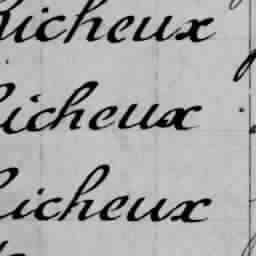 Richeux
Richeux
Richeux